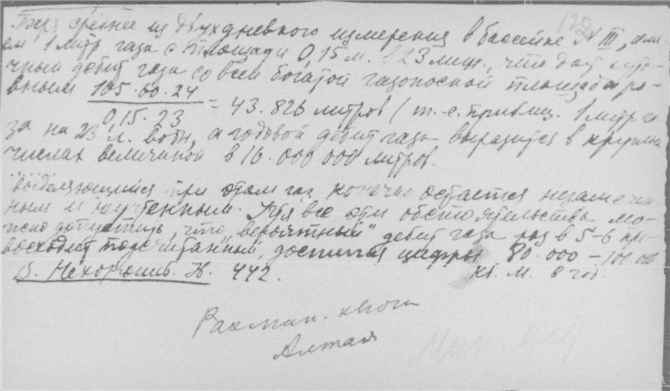 Беря среднее из двухдневного измерения в бассейне № III, имеем
1 литр газа с площади 0,15 м. в 23 мин., что даст суточный
дебит газа со всей богатой газоносной площади равным
105.60.24 / 0,15.23 = 43.826 литров (т.-е. приблиз. 1 литр газа
на 23 л. воды, а годовой дебит газа выразится в круглых
числах величиной в 16.000000 литров.
Выделяющийся при этом газ конечно остается незамеченным
и неучтенным. Учтя все эти обстоятельства можно
допустить, что "вероятный" дебит газа раз в 5-6 превосходит
подсчитанный, достигая цифры 80.000 – 100.000
В. Нехорошев. 442. кб. м. в год.
Рахман. ключи
Алтая